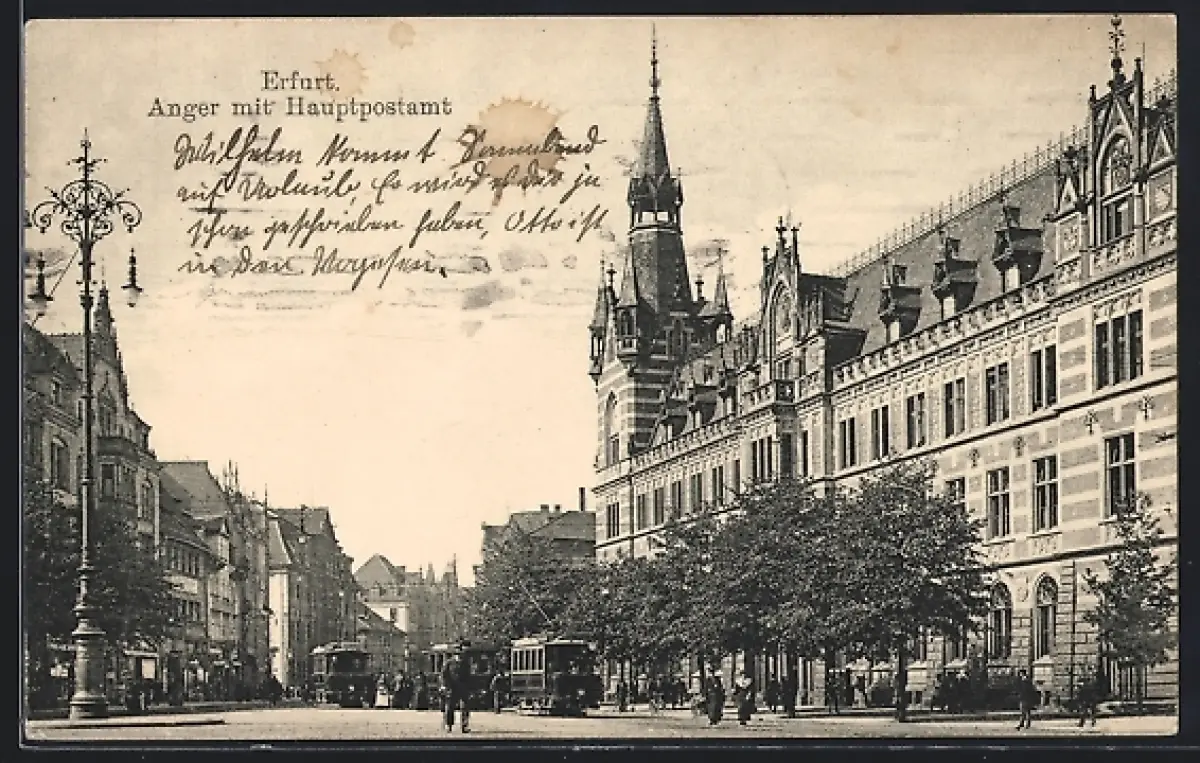 Erfurt.
Anger mit Hauptpostamt
Wilhelm kommt Sonnabend
auf Urlaub, Er wird es dir ja
schon geschrieben haben, Otto ist
in den Vogesen.